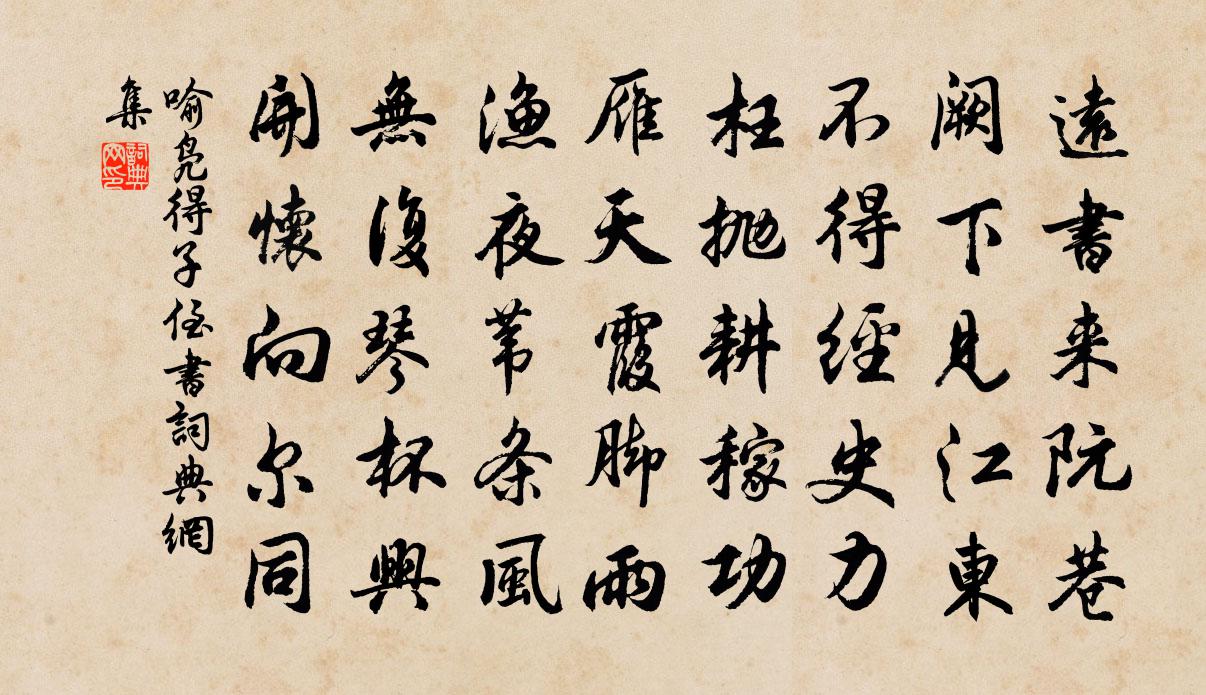 遠書来阮巷
闕下見江東
不得經史力
枉抛耕稼功
雁天霞脚雨
漁夜苇条風
無復琴杯興
開懷向尔同
喻凫得子侄書詞典網
集
詞典網印